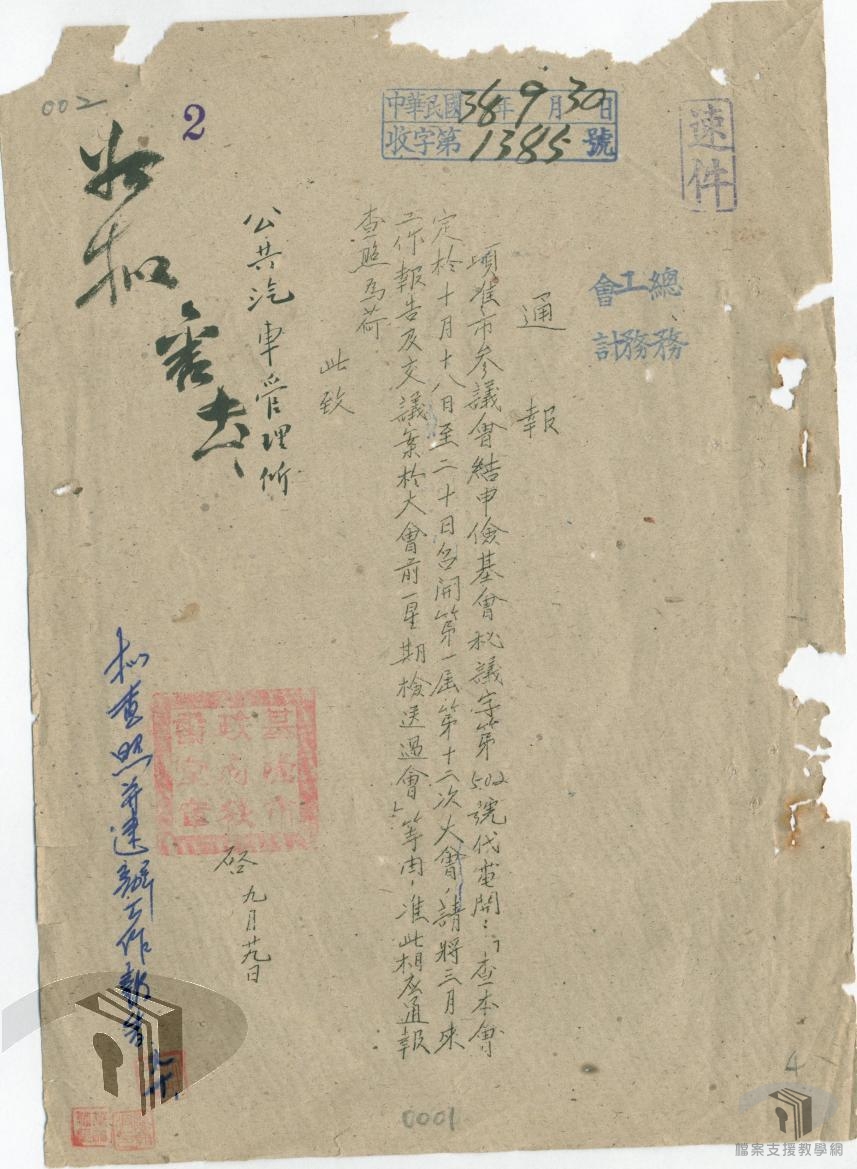 002
2
中華民國38年9月30日
收字第1385號
速件
總務
工務
會計
通報
頃准市參議會結申儉基會秘議字第502號代電開：「查本會
定於十月十八日至二十日召開第一屆第十二次大會，請將三月來
工作報告及交議案於大會前一星期檢送過會」等由，准此相應通報
查照為荷
此致
公共汽車管理所
啓 九月廿九日
如擬
擬查照并速辦工作報告
4
0001
檔案支援教學網